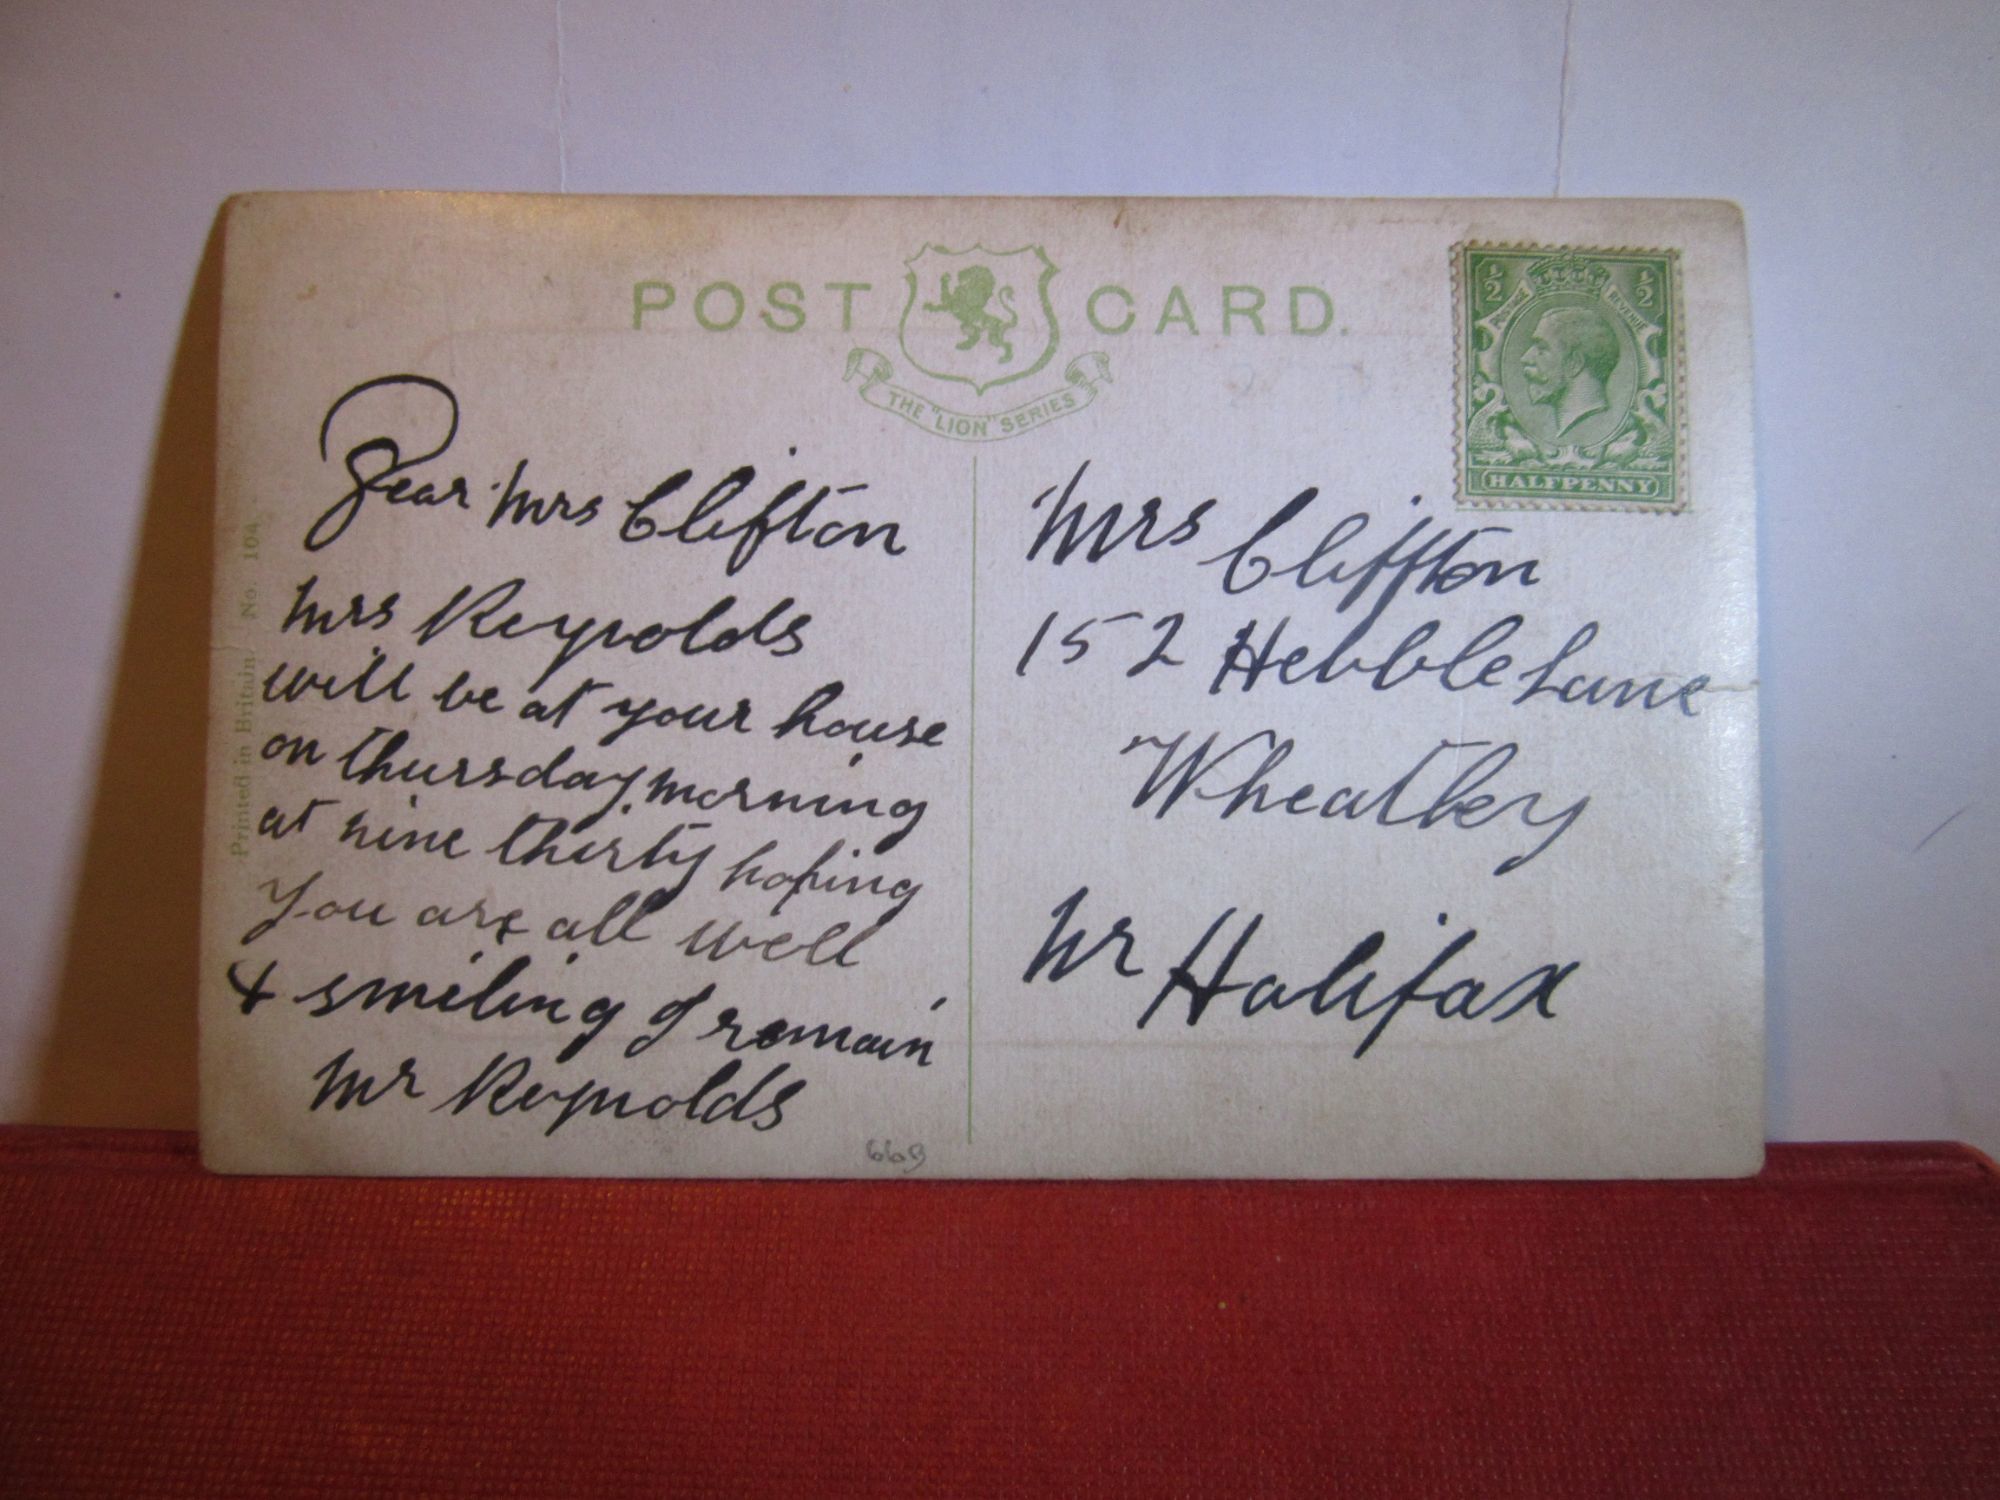 POST CARD.
THE "LION" SERIES
½ ½
POSTAGE REVENUE
HALFPENNY
Printed in Britain. No. 104.
Dear Mrs Clifton
Mrs Reynolds
will be at your house
on thursday, morning
at nine thirty hoping
you are all well
& smiling I remain
Mr Reynolds
Mrs Cliffton
152 Hebble Lane
Wheatley
Nr Halifax